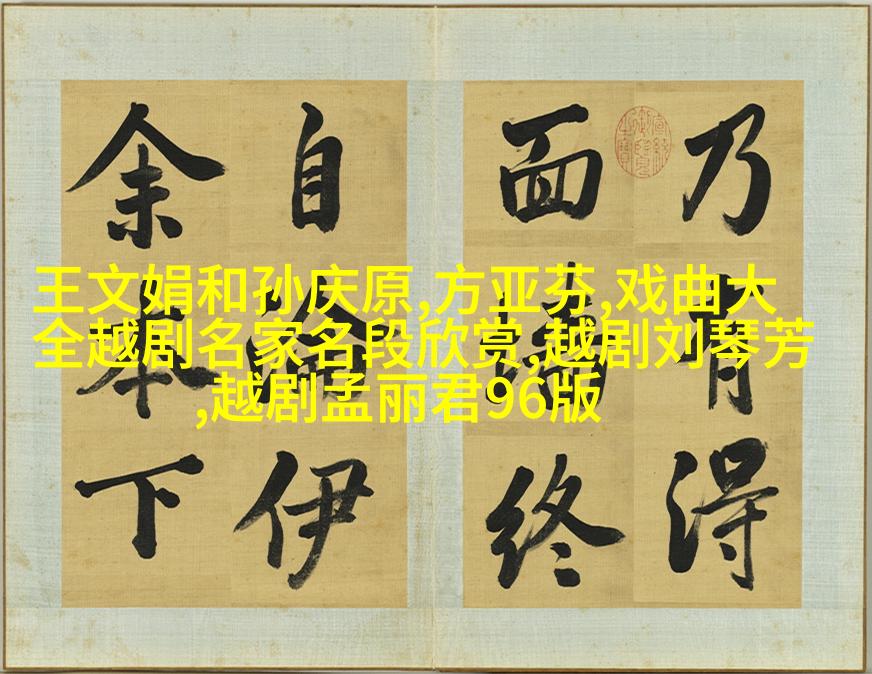 王文娟和孙庆原,方亚芬,戏曲大
全越剧名家名段欣赏,越剧刘琴芳
,越剧孟丽君96版
乃得
面終
自伊
余本下